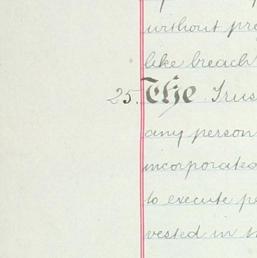 without pre
like breach
25. The Trus
any person
incorporated
to execute po
vested in th